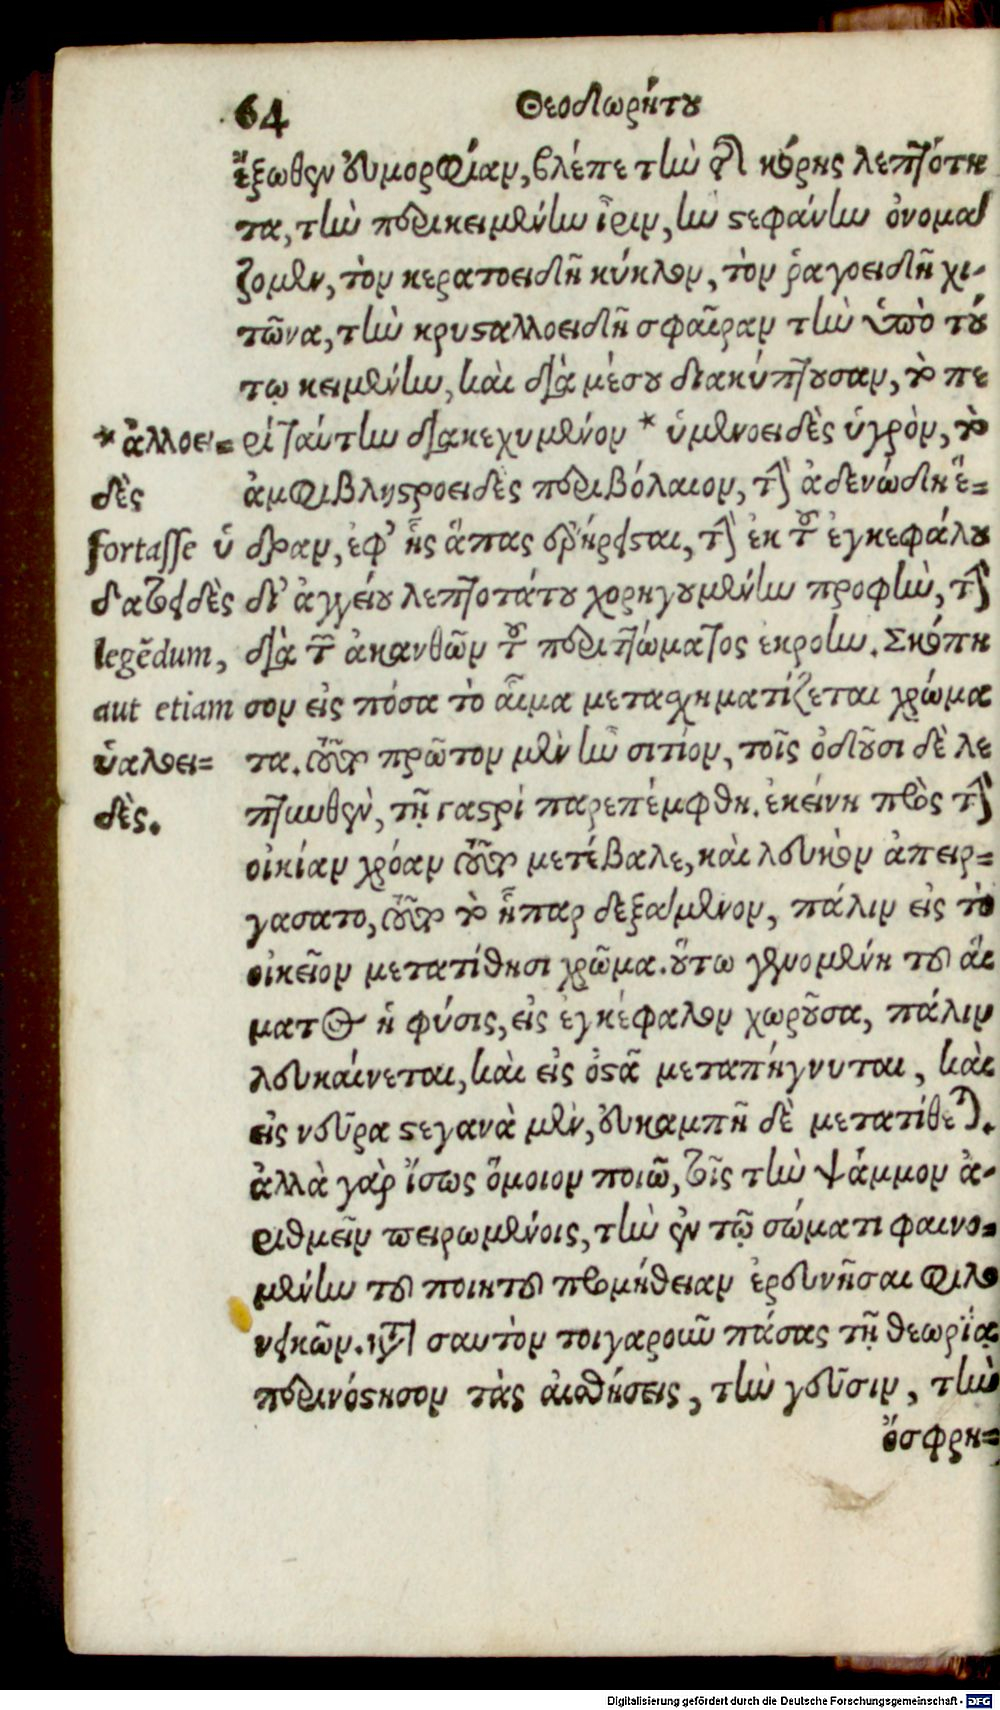 64 Θεοδωρήτου
ἔξωθεν εὐμορφίαν, βλέπε τὴν τῆς κόρης λεπτότη
τα, τὴν περικειμένην ἶριν, ἣν στεφάνην ὀνομά
ζομεν, τὸν κερατοειδῆ κύκλον, τὸν ῥαγοειδῆ χι-
τῶνα, τὴν κρυσταλλοειδῆ σφαῖραν τὴν ὑπὸ τού
τῳ κειμένην, καὶ διὰ μέσου διακύπτουσαν, τὸ πε
ρὶ ταύτην διακεχυμένον * ὑμενοειδὲς ὑγρὸν, τὸ
ἀμφιβληστροειδὲς περιβόλαιον, τὴν ἀδενώδη ἕ=
δραν, ἐφ' ἧς ἅπας ἐρήρεισται, τὴν ἐκ τοῦ ἐγκεφάλου
δι' ἀγγείου λεπτοτάτου χορηγουμένην τροφὴν, τὴν
διὰ τῶν ἀκανθῶν τοῦ περιττώματος ἐκροήν. Σκόπη
σον εἰς πόσα τὸ αἷμα μετασχηματίζεται χρώμα
τα. τοῦτο πρῶτον μὲν ἦν σιτίον, τοῖς ὀδοῦσι δὲ λε
πτυνθὲν, τῇ γαστρὶ παρεπέμφθη. ἐκείνη πρὸς τὴν
οἰκίαν χρόαν τοῦτο μετέβαλε, καὶ λευκὸν ἀπειρ=
γασατο, τοῦτο τὸ ἧπαρ δεξάμενον, πάλιν εἰς τὸ
οἰκεῖον μετατίθησι χρῶμα. οὕτω γενομένη τοῦ αἵ
ματος ἡ φύσις, εἰς ἐγκέφαλον χωροῦσα, πάλιν
λευκαίνεται, καὶ εἰς ὀστᾶ μεταπήγνυται, καὶ
εἰς νεῦρα στεγανὰ μὲν, εὐκαμπῆ δὲ μετατίθεται.
ἀλλὰ γὰρ ἴσως ὅμοιον ποιῶ, τοῖς τὴν ψάμμον ἀ-
ριθμεῖν πειρωμένοις, τὴν ἐν τῷ σώματι φαινο=
μένην τοῦ ποιητοῦ προμήθειαν ἐρευνῆσαι φιλο
νεικῶν. κατὰ σαυτὸν τοιγαροῦν πάσας τῇ θεωρίᾳ
περινόστησον τὰς αἰσθήσεις, τὴν γεῦσιν, τὴν
ὄσφρη=
* ἀλλοει=
δὲς
fortasse ὑ
δατοειδὲς
legẽdum,
aut etiam
ὑαλοει=
δὲς.
Digitalisierung gefördert durch die Deutsche Forschungsgemeinschaft - DFG